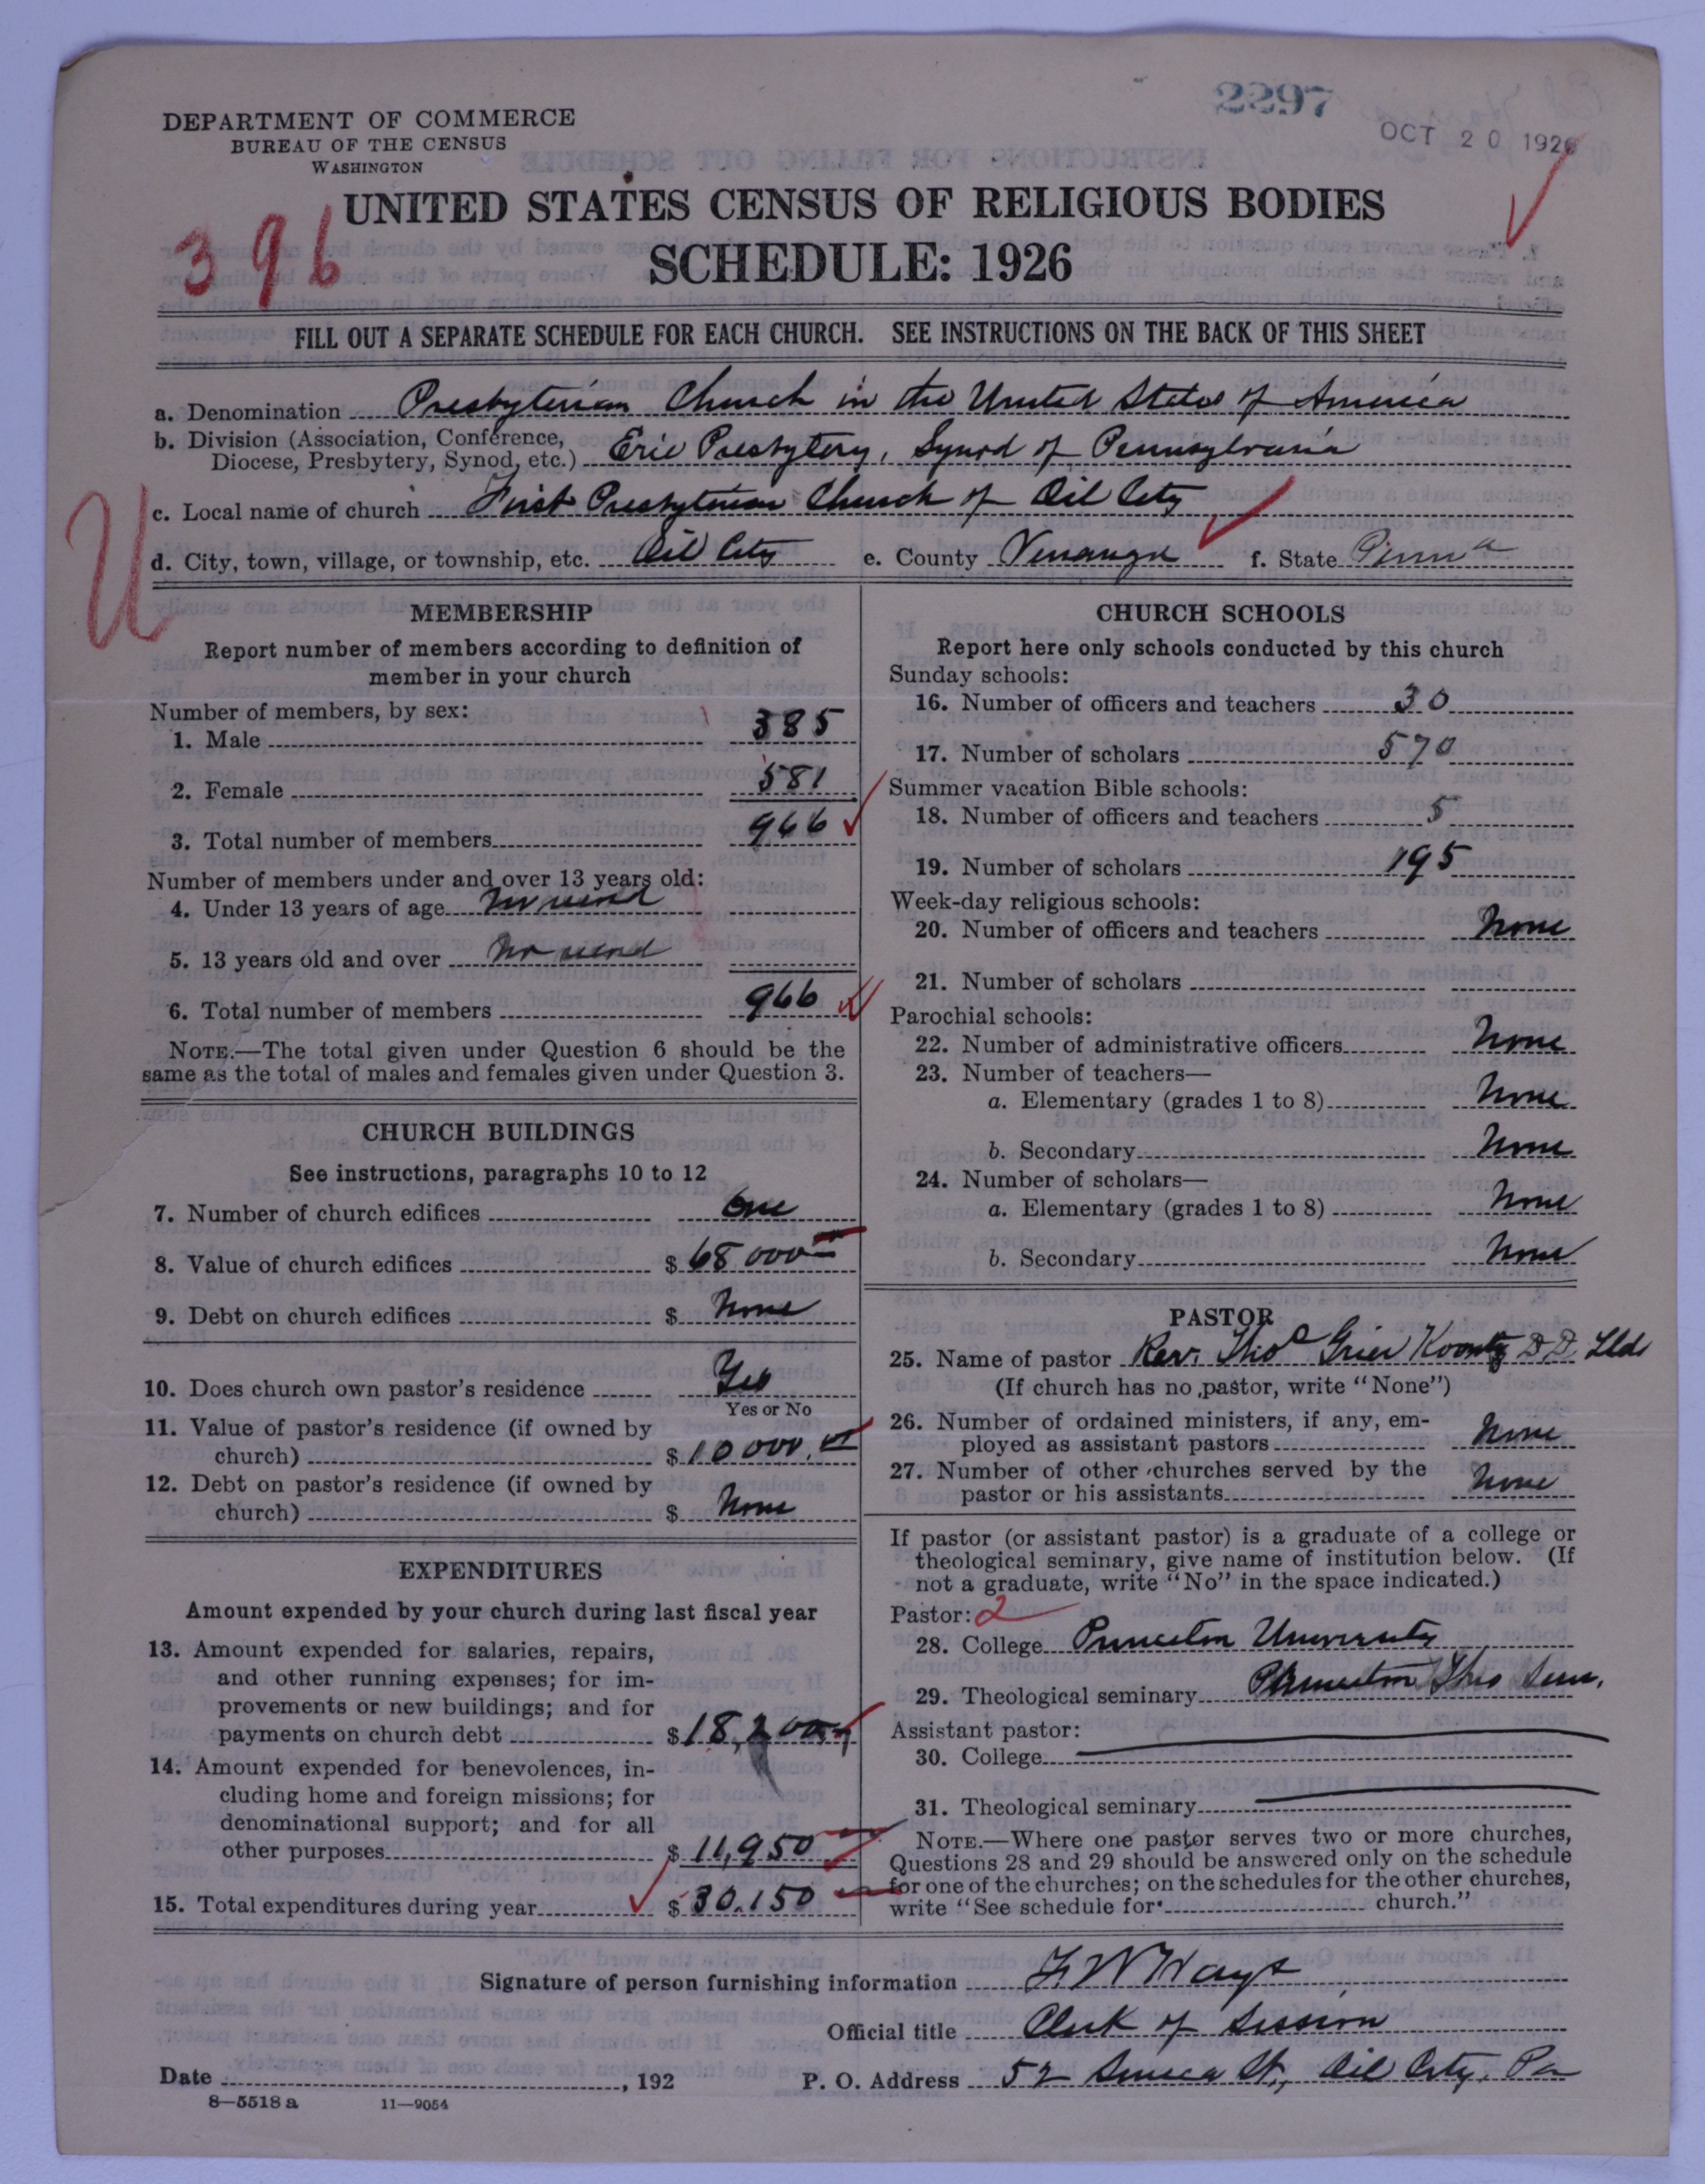 2297
OCT 20 1926
DEPARTMENT OF COMMERCE
BUREAU OF THE CENSUS
WASHINGTON
UNITED STATES CENSUS OF RELIGIOUS BODIES
SCHEDULE: 1926
396
FILL OUT A SEPARATE SCHEDULE FOR EACH CHURCH. SEE INSTRUCTIONS ON THE BACK OF THIS SHEET
a. Denomination Presbyterian Church in the United States of America
b. Division (Association, Conference, Diocese, Presbytery, Synod, etc.) Erie Presbytery, Synod of Pennsylvania
c. Local name of church First Presbyterian Church of Oil City
d. City, town, village, or township, etc. Oil City e. County Venango f. State Penna
U
MEMBERSHIP
Report number of members according to definition of
member in your church
Number of members, by sex:
1. Male 385
2. Female 581
3. Total number of members 966
Number of members under and over 13 years old:
4. Under 13 years of age No
5. 13 years old and over No
6. Total number of members 966
NOTE.—The total given under Question 6 should be the
same as the total of males and females given under Question 3.
CHURCH BUILDINGS
See instructions, paragraphs 10 to 12
7. Number of church edifices One
8. Value of church edifices $ 68 000
9. Debt on church edifices $ None
10. Does church own pastor's residence Yes
Yes or No
11. Value of pastor's residence (if owned by
church) $ 10 000.00
12. Debt on pastor's residence (if owned by
church) $ None
EXPENDITURES
Amount expended by your church during last fiscal year
13. Amount expended for salaries, repairs,
and other running expenses; for im-
provements or new buildings; and for
payments on church debt $ 18,200
14. Amount expended for benevolences, in-
cluding home and foreign missions; for
denominational support; and for all
other purposes $ 11,950
15. Total expenditures during year $ 30.150
CHURCH SCHOOLS
Report here only schools conducted by this church
Sunday schools:
16. Number of officers and teachers 30
17. Number of scholars 570
Summer vacation Bible schools:
18. Number of officers and teachers 5
19. Number of scholars 195
Week-day religious schools:
20. Number of officers and teachers None
21. Number of scholars
Parochial schools:
22. Number of administrative officers None
23. Number of teachers—
a. Elementary (grades 1 to 8) None
b. Secondary None
24. Number of scholars—
a. Elementary (grades 1 to 8) None
b. Secondary None
PASTOR
25. Name of pastor Rev. Thos Grier Koontz D.D. LLd.
(If church has no pastor, write "None")
26. Number of ordained ministers, if any, em-
ployed as assistant pastors None
27. Number of other churches served by the
pastor or his assistants None
If pastor (or assistant pastor) is a graduate of a college or
theological seminary, give name of institution below. (If
not a graduate, write "No" in the space indicated.)
Pastor: 2
28. College Princeton University
29. Theological seminary Princeton Theo Sem.
Assistant pastor:
30. College
31. Theological seminary
NOTE.—Where one pastor serves two or more churches,
Questions 28 and 29 should be answered only on the schedule
for one of the churches; on the schedules for the other churches,
write "See schedule for church."
Signature of person furnishing information F W Hays
Official title Clerk of Session
Date , 192 P. O. Address 52 Seneca St, Oil City, Pa
8—5518 a 11—9054